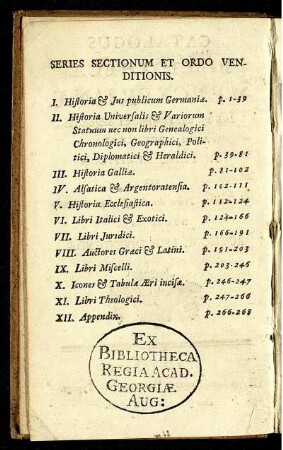 SERIES SECTIONUM ET ORDO VEN-
DITIONIS.
I. Historia & Jus publicum Germaniæ. p. 1-39
II. Historia Universalis & Variorum
Statuum nec non libri Genealogici
Chronologici, Geographici, Poli-
tici, Diplomatici & Heraldici. p. 39-81
III. Historia Galliæ. p. 81-102
IV. Alsatica & Argentoratensia. p. 102-111
V. Historia Ecclesiastica. p. 112-124
VI. Libri Italici & Exotici. p. 124-166
VII. Libri Juridici. p. 166-191
VIII. Auctores Græci & Latini. p. 191-203
IX. Libri Miscelli. p. 203-246
X. Icones & Tabulæ Æri incisæ. p. 246-247
XI. Libri Theologici. p. 247-266
XII. Appendix. p. 266-268
EX
BIBLIOTHECA
REGIA ACAD.
GEORGIÆ
AUG: